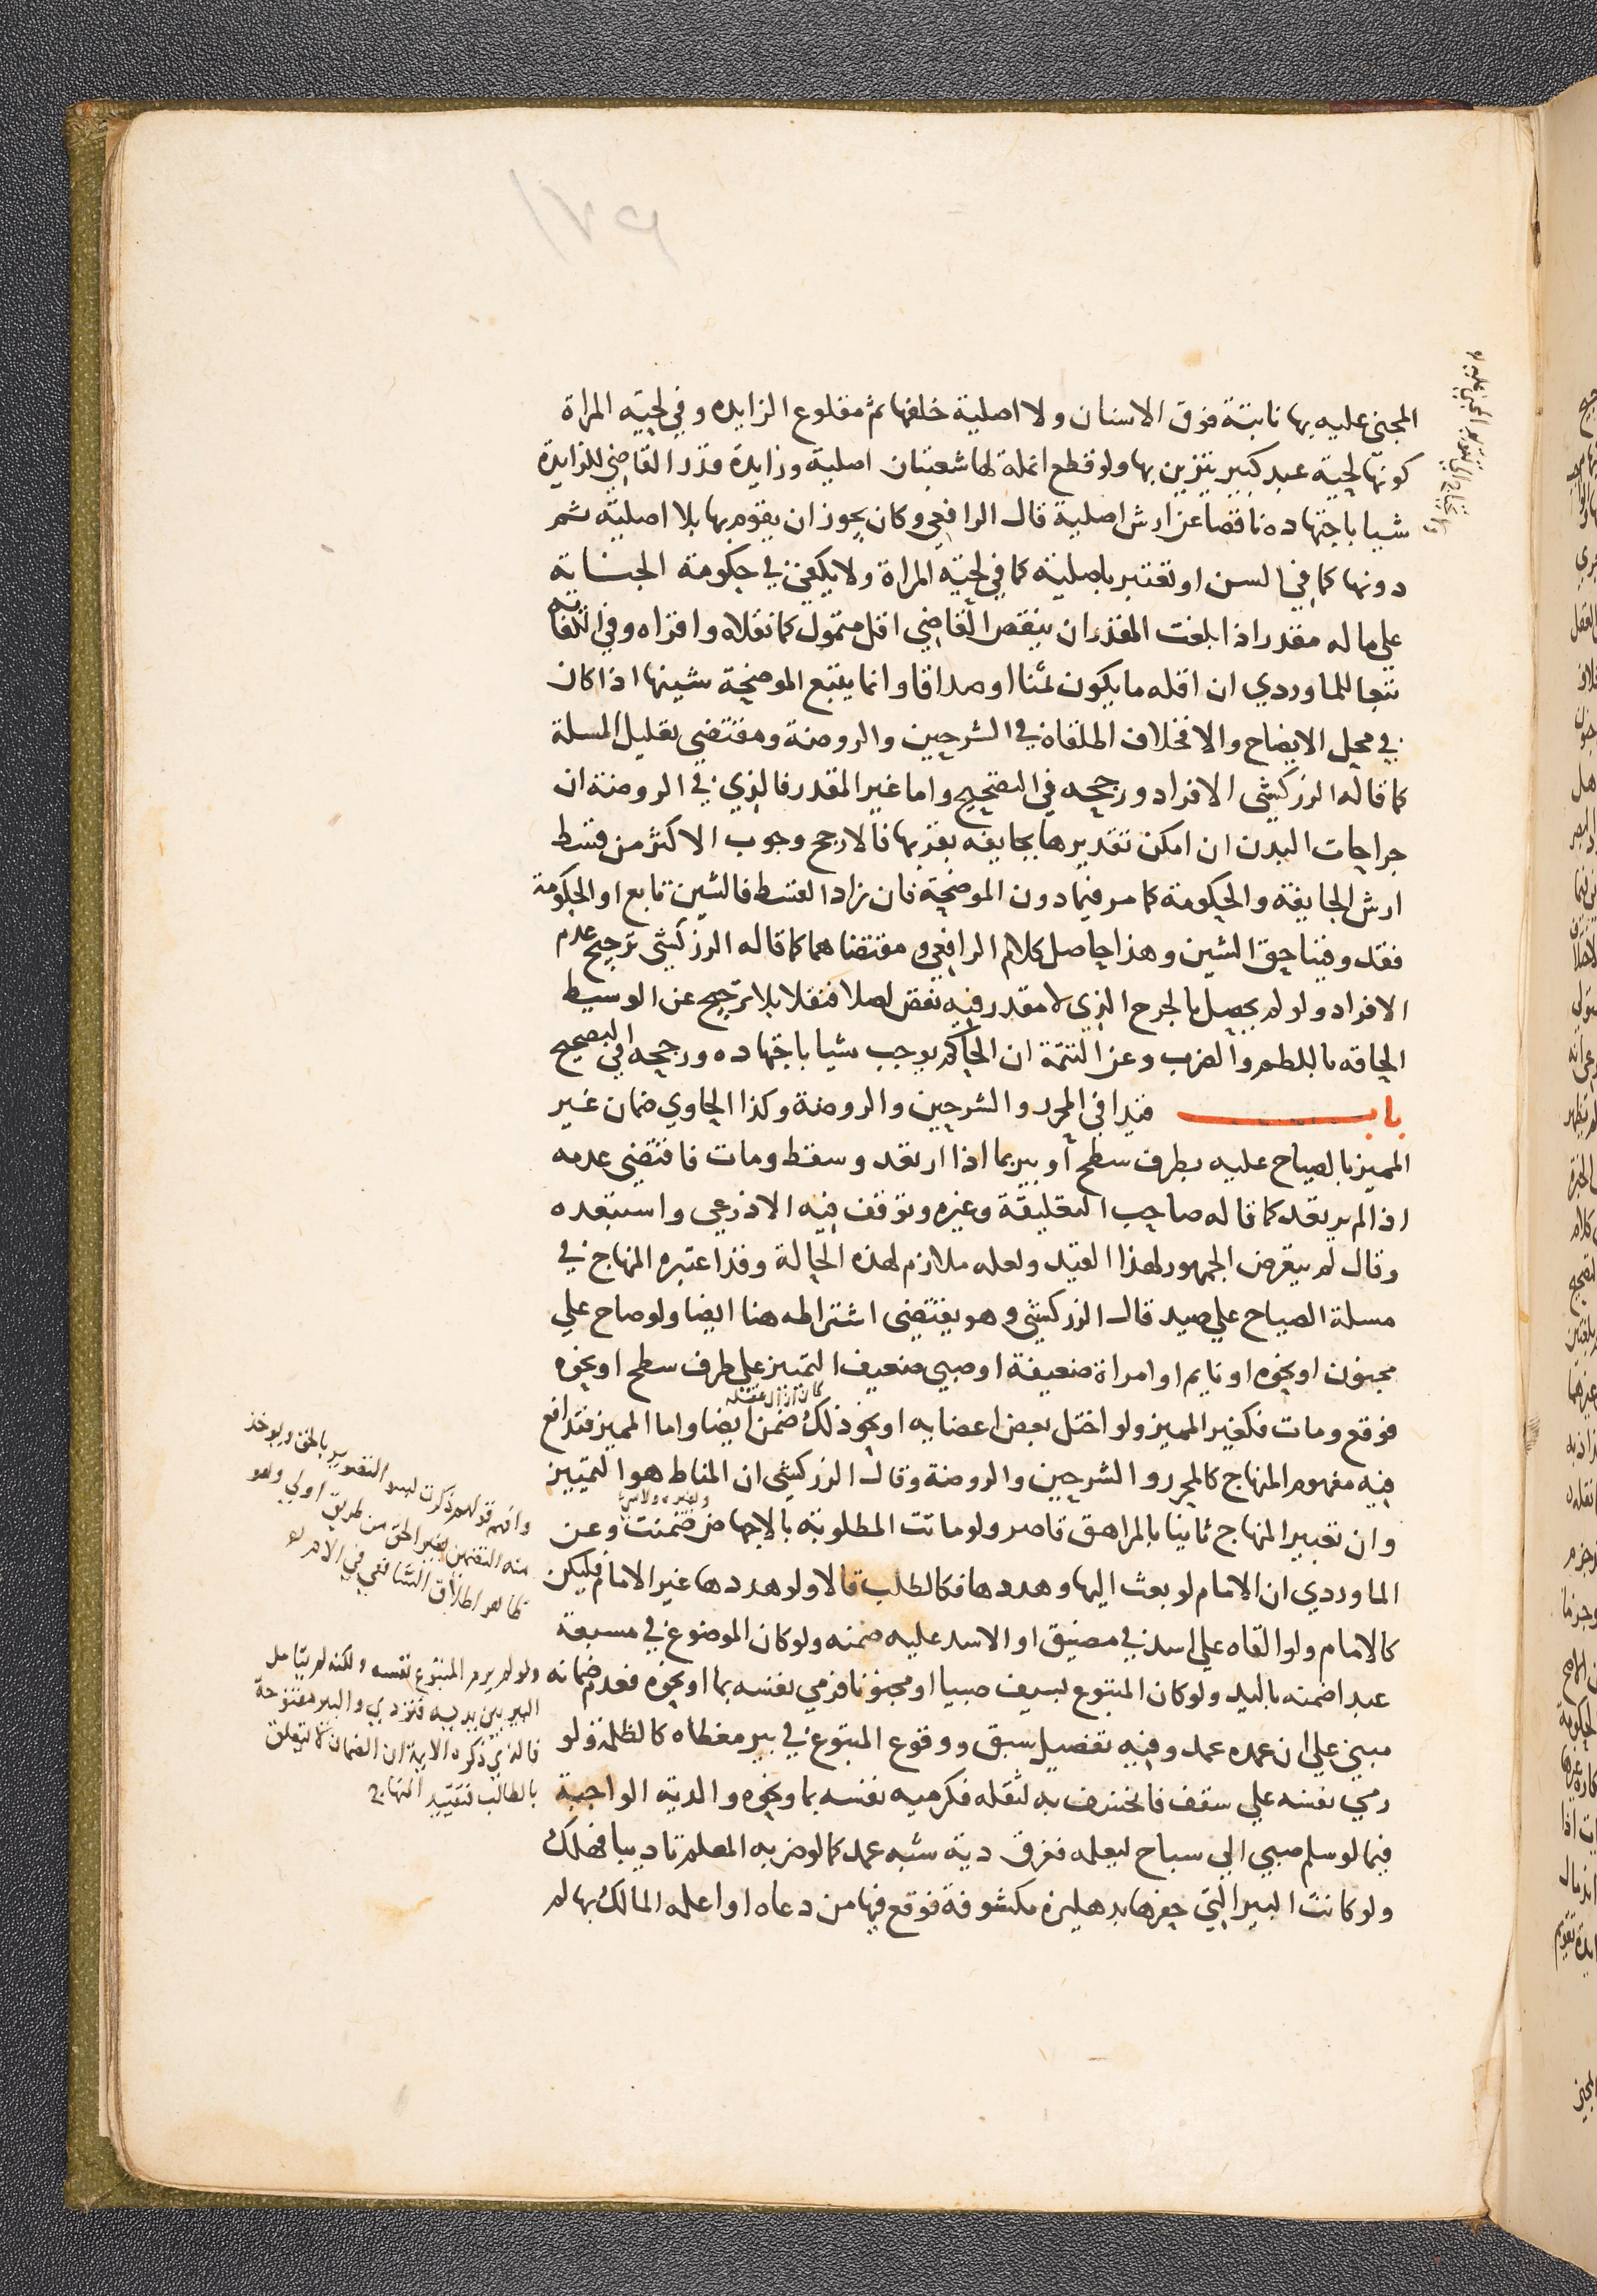 المجني عليه بها نابتة فوق الاسنان ولا اصلية خلفها ثم مقلوع الزايده وفي لحيه المراة
كونها لحية عبد كبير يتزين بها ولو قطع انملة لها شعبتان اصلية وزايدة قدر القاضي للزايدة
شيا باجتهاده ناقصا عن ارش اصلية قال الرافعي وكان يجوز ان يقوم بها بلا اصلية ثم
دونها كما في السن او تعتبر باصلية كما في لحيه المراة ولا يكفي في حكومة الجناية
على ما له مقدر اذا بلغت المقدر ان ينقص القاضي اقل متمول كما نقلاه واقراه وفي الكفاية
تبعا للماوردي ان اقله ما يكون ثمنا او صداقا وانما يتبع الموضحة شينها اذا كان
في محل الايضاح والا فخلاف اطلقاه في الشرحين والروضة ومقتضى تعليل المسلة
كما قاله الزركشي الافراد ورجحه في التصحيح واما غير المقدر فالذي في الروضة ان
جراحات البدن ان امكن تقديرها بجايفه بقربها فالارجح وجوب الاكثر من قسط
ارش الجايفة والحكومة كما مر فيما دون الموضحة فان زاد القسط فالشين تابع او الحكومة
فقد وفينا حق الشين وهذا حاصل كلام الرافعي ومقتضاهما كما قاله الزركشي ترجيح عدم
الافراد ولو لم يحصل بالجرح الذي لا مقدر فيه نقص اصلا فنقلا بلا ترجيح عن الوسيط
الحاقه باللطم والضرب وعن التتمة ان الحاكم يوجب شيا باجتهاده ورجحه في التصحيح
باب قيدا في المحرر والشرحين والروضة وكذا الحاوي ضمان غير
المميز بالصياح عليه بطرف سطح او بير بما اذا ارتعد وسقط ومات فاقتضى عدمه
اذا لم يرتعد كما قاله صاحب التعليقة وغيره وتوقف فيه الاذرعي واستبعده
وقال لم يتعرض الجمهور لهذا القيد ولعله ملازم لهذه الحالة وقد اعتبره المنهاج في
مسلة الصياح على صيد قال الزركشي وهو يقتضى اشتراطه هنا ايضا ولو صاح على
مجنون او نحوه او نايم او امراة ضعيفة او صبي ضعيف التمييز على طرف سطح او نحوه
فوقع ومات فكغير المميز ولو اختل بعض اعضايه او نحو ذلك كان زال عقله ضمن ايضا واما المميز فتدافع
فيه مفهوم المنهاج كالمحرر والشرحين والروضة وقال الزركشي ان المناط هو التمييز
وان تعبير المنهاج ثانيا بالمراهق قاصر ولو ماتت المطلوبة بالاجهاض ضمنت وعن
الماوردي ان الامام لو بعث اليها وهددها فكالطلب قالا ولو هددها غير الامام فليكن
كالامام ولو القاه على اسد في مضيق او الاسد عليه ضمنه ولو كان الموضوع في مسبعة
عبدا ضمنه باليد ولو كان المتبوع بسيف صبيا او مجنونا فرمي نفسه بما او نحوه فعدم ضمانه
مبني على ان عمده عمد وفيه تفصيل سبق ووقوع المتبوع في بير مغطاه كالظلمة ولو
رمي نفسه على سقف فانخسف به لثقله فكرميه نفسه بما ونحوه والدية الواجبة
فيما لو سلم صبي الى سباح ليعلمه فغرق دية شبه عمد كما لو ضربه المعلم تاديبا فهلك
ولو كانت البير التي حفرها بدهليزه مكشوفة فوقع فيها من دعاه او اعلمه المالك بها لم
منه التضمين بغير الحق من طريق اولى وهو
ظاهر اطلاق الشافعي في الام
ولو لم يرم المتبوع نفسه ولكنه لم يتامل
البير بين يديه فتردي والبير مفتوحة
فالذي ذكره الايمة ان الضمان لا يتعلق
بالطالب فتقييد المنهاج